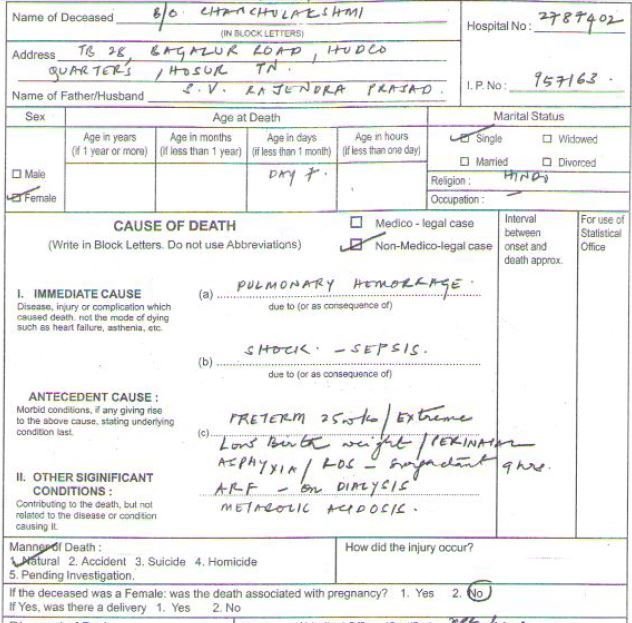 Name of Deceased B/O CHANCHULAKSHMI
(IN BLOCK LETTERS)
Hospital No: 2787402
Address TB 28, BAGALUR ROAD, HUDCO
QUARTERS, HOSUR TN.
I.P. No: 957163.
Name of Father/Husband S.V. RAJENDRA PRASAD.
Sex Age at Death Marital Status
Age in years (if 1 year or more) Age in months (if less than 1 year) Age in days (if less than 1 month) Age in hours (if less than one day)
Single Widowed
Married Divorced
Male DAY 7.
Religion: HINDU
Female
Occupation: -
CAUSE OF DEATH
(Write in Block Letters. Do not use Abbreviations)
Medico - legal case
Non-Medico-legal case
Interval between onset and death approx.
For use of Statistical Office
I. IMMEDIATE CAUSE
Disease, injury or complication which
caused death. not the mode of dying
such as heart failure, asthenia, etc.
(a) PULMONARY HEMORRAGE.
due to (or as consequence of)
(b) SHOCK. - SEPSIS.
due to (or as consequence of)
ANTECEDENT CAUSE :
Morbid conditions, if any giving rise
to the above cause, stating underlying
condition last.
(c) PRETERM 25wks/ Extreme
Low Birth weight / PERINATAL
ASPHYXIA / RDS - surfactant 9 hrs.
II. OTHER SIGINIFICANT
CONDITIONS :
Contributing to the death, but not
related to the disease or condition
causing it.
ARF - on DIALYSIS
METABOLIC ACIDOSIS.
Manner of Death :
1. Natural 2. Accident 3. Suicide 4. Homicide
5. Pending Investigation.
How did the injury occur?
If the deceased was a Female: was the death associated with pregnancy? 1. Yes 2. No
If Yes, was there a delivery 1. Yes 2. No